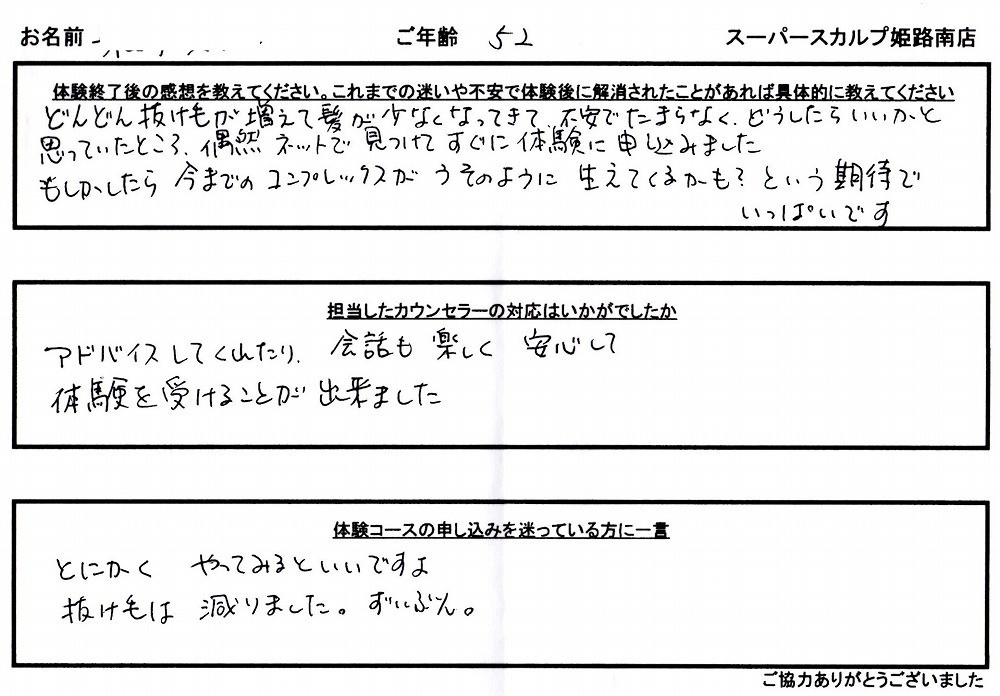 お名前 ご年齢 52 スーパースカルプ姫路南店
体験終了後の感想を教えてください。これまでの迷いや不安で体験後に解消されたことがあれば具体的に教えてください
どんどん抜け毛が増えて髪が少なくなってきて、不安でたまらなく、どうしたらいいかと
思っていたところ、偶然ネットで見つけてすぐに体験に申し込みました
もしかしたら今までのコンプレックスがうそのように生えてくるかも?という期待で
いっぱいです
担当したカウンセラーの対応はいかがでしたか
アドバイスしてくれたり、会話も楽しく安心して
体験を受けることが出来ました
体験コースの申し込みを迷っている方に一言
とにかくやってみるといいですよ
抜け毛は減りました。ずいぶん。
ご協力ありがとうございました